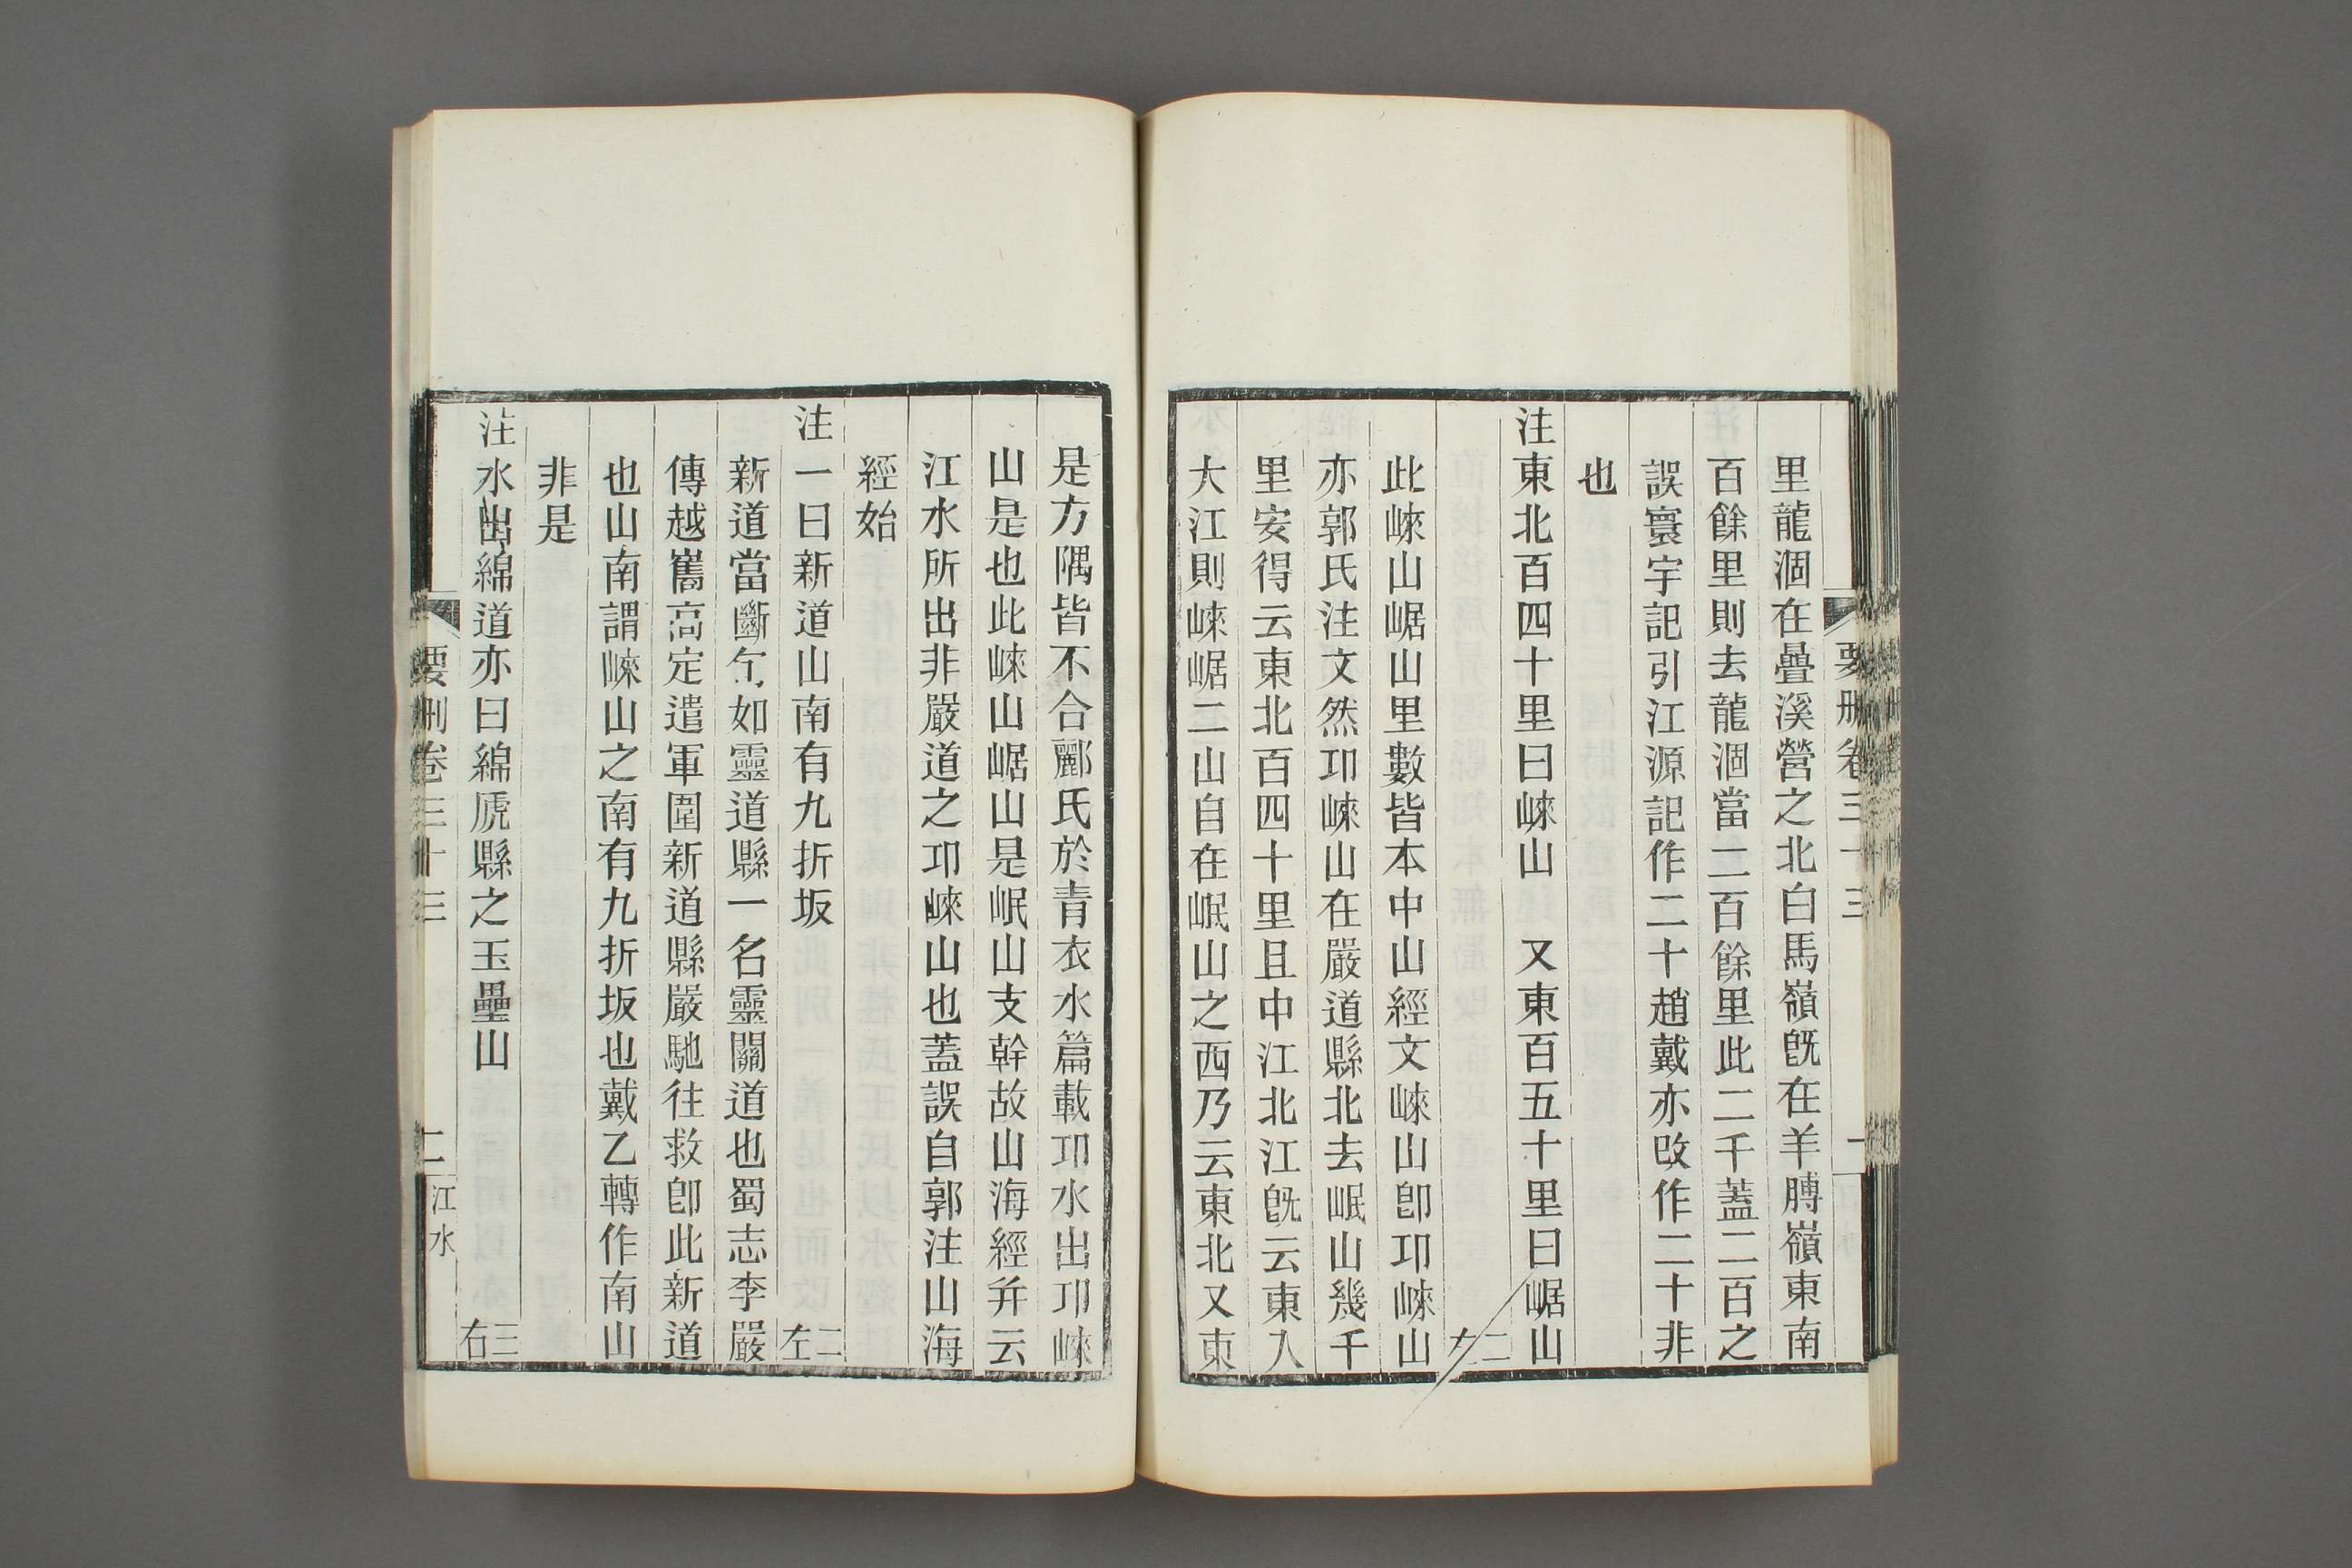 里龍涸在疊溪營之北白馬嶺旣在羊膊嶺東南
百餘里則去龍涸當二百餘里此二千蓋二百之
誤寰宇記引江源記作二十趙戴亦改作二十非
也
注東北百四十里曰崍山　又東百五十里曰崌山
二左
此崍山崌山里數皆本中山經文崍山卽邛崍山
亦郭氏注文然邛崍山在嚴道縣北去岷山幾千
里安得云東北百四十里且中江北江旣云東入
大江則崍崌二山自在岷山之西乃云東北又東
要刪卷三十三
一
是方隅皆不合酈氏於青衣水篇載邛水出邛崍
山是也此崍山崌山是岷山支幹故山海經并云
江水所出非嚴道之邛崍山也蓋誤自郭注山海
經始
注一曰新道山南有九折坂　二左
新道當斷句如靈道縣一名靈關道也蜀志李嚴
傳越巂高定遣軍圍新道縣嚴馳往救卽此新道
也山南謂崍山之南有九折坂也戴乙轉作南山
非是
注水出綿道亦曰綿虒縣之玉壘山　三右
要刪卷三十三
二
江水